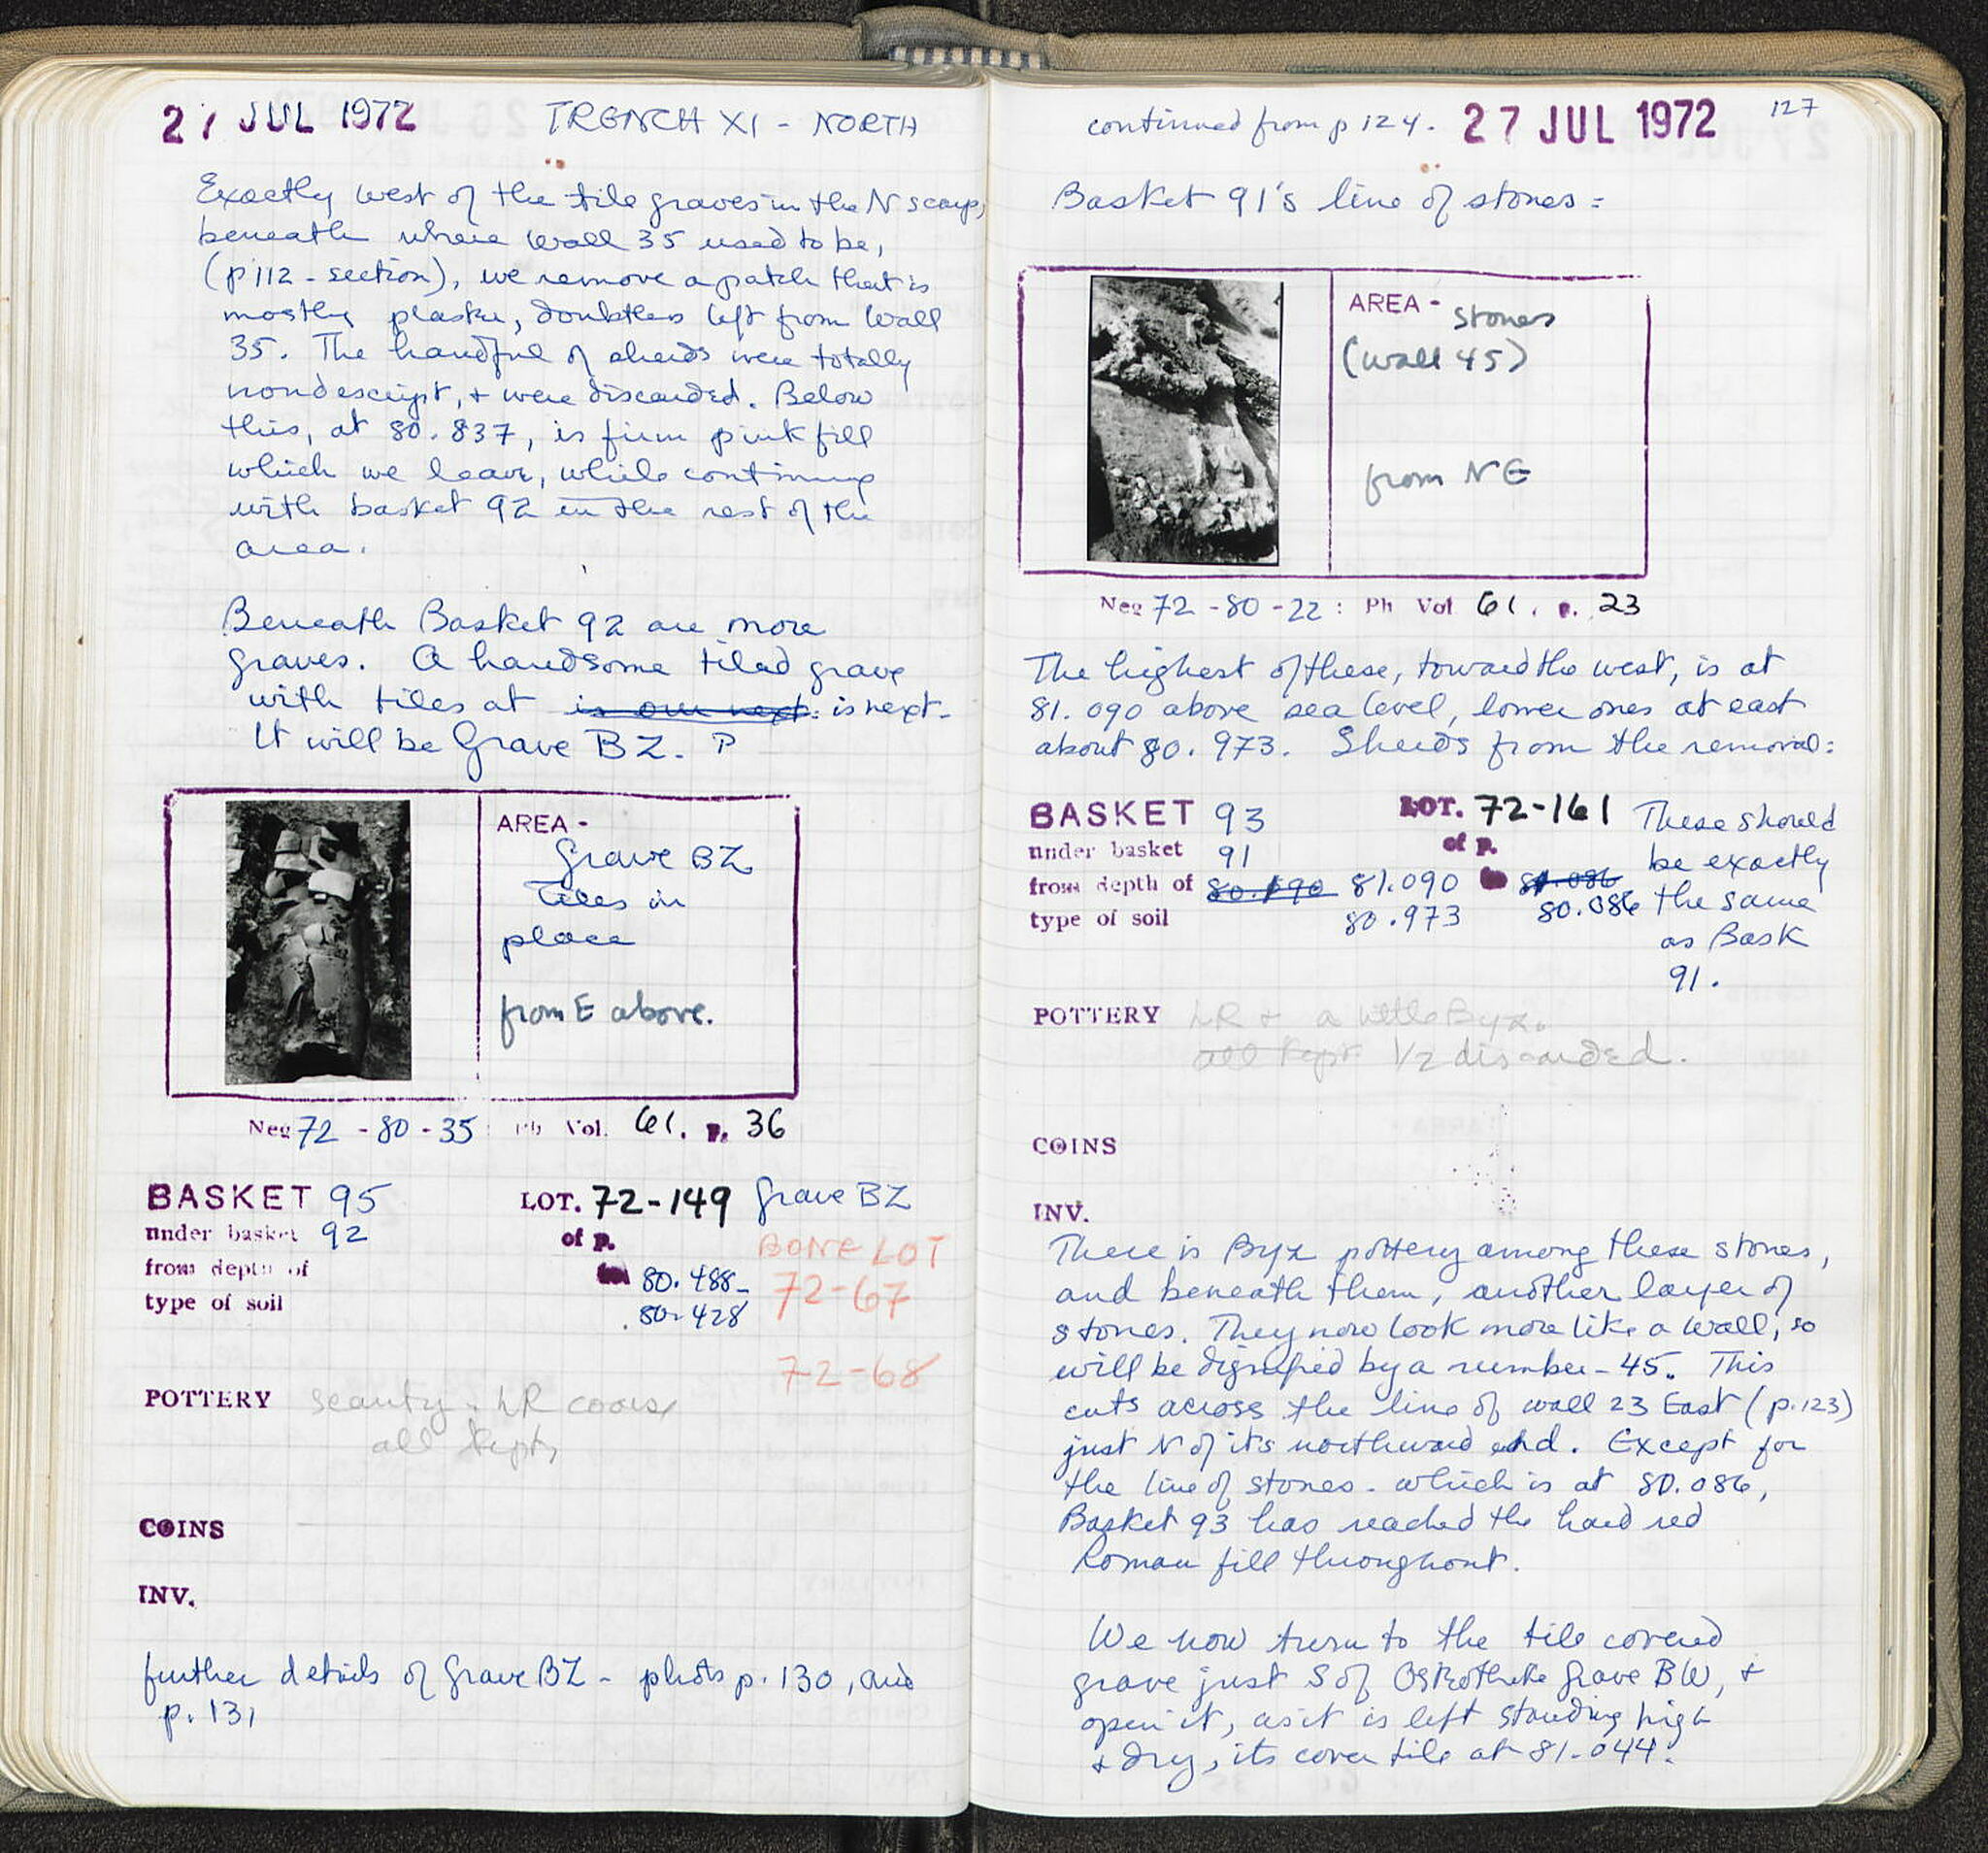 27 JUL 1972 TRENCH XI - NORTH
Exactly west of the tile graves in the N scarp,
beneath where Wall 35 used to be,
(p 112 - section), we remove a patch that is
mostly plaster, doubtless left from Wall
35. The handful of sherds were totally
nondescript, + were discarded. Below
this, at 80.837, is firm pink fill
which we leave, while continuing
with basket 92 in the rest of the
area.
Beneath Basket 92 are more
graves. A handsome tiled grave
with tiles at is our next. is next.
It will be Grave BZ. P
AREA -
Grave BZ
tiles in
place
from E above.
Neg 72 - 80 - 35 : Ph Vol. 61. p. 36
BASKET 95 LOT. 72-149 Grave BZ
under basket 92 of p.
from depth of to 80.488-
type of soil 80.428
BONE LOT
72-67
72-68
POTTERY scanty. LR coarse
all kept,
COINS
INV.
further details of Grave BZ - photo p. 130, and
p. 131
continued from p 124. 27 JUL 1972 127
Basket 91's line of stones =
AREA - stones
(wall 45)
from NE
Neg 72 - 80 - 22 : Ph Vol 61. p. 23
The highest of these, toward the west, is at
81.090 above sea level, lower ones at east
about 80.973. Sherds from the removal:
BASKET 93 LOT. 72-161
under basket 91 of p.
from depth of 81.090 to 81.086
type of soil 80.973 80.086
These should
be exactly
the same
as Bask
91.
POTTERY LR + a little Byz.
all kept 1/2 discarded.
COINS
INV.
There is Byz pottery among these stones,
and beneath them, another layer of
stones. They now look more like a wall, so
will be dignified by a number - 45. This
cuts across the line of wall 23 East (p.123)
just N of its northward end. Except for
the line of stones - which is at 80.086,
Basket 93 has reached the hard red
Roman fill throughout.
We now turn to the tile covered
grave just S of Osteotheke Grave BW, +
open it, as it is left standing high
+ dry, its cover tile at 81.044.